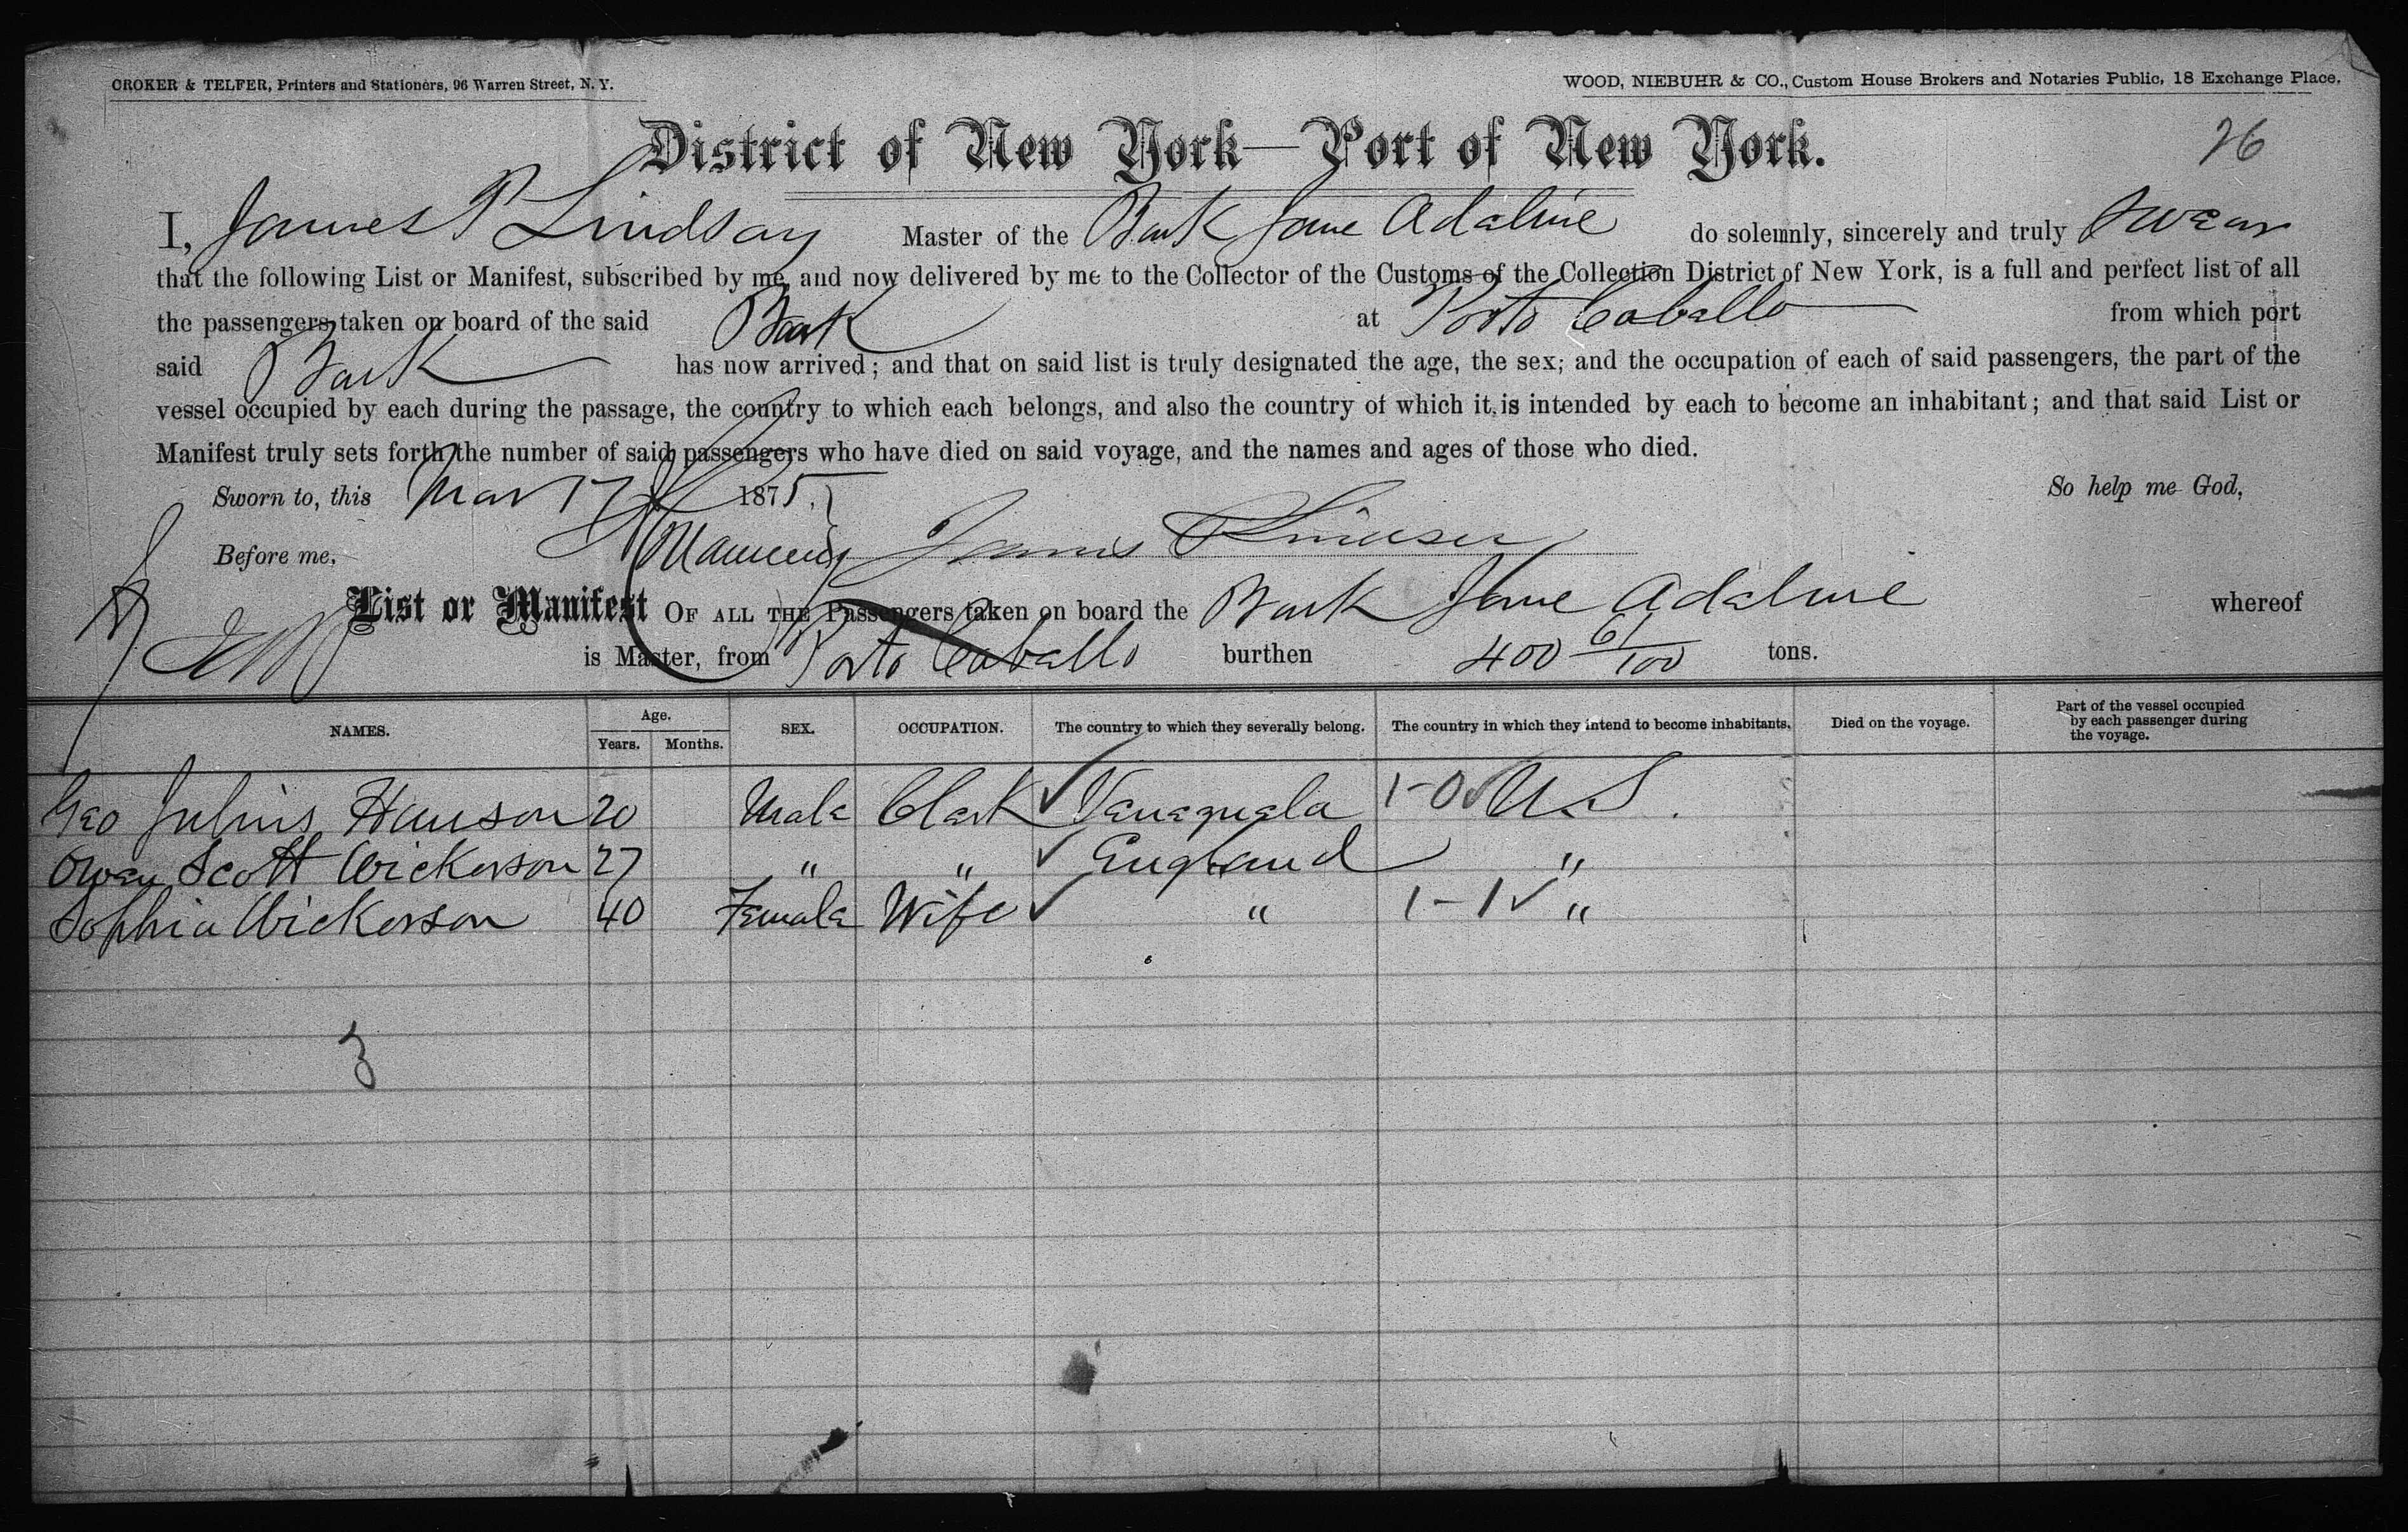 CROKER & TELFER, Printers and Stationers, 96 Warren Street, N. Y.
WOOD, NIEBUHR & CO., Custom House Brokers and Notaries Public, 18 Exchange Place.
District of New York—Port of New York.
26
I, James P Lindsay Master of the Bark Jane Adaline do solemnly, sincerely and truly Swear
that the following List or Manifest, subscribed by me, and now delivered by me to the Collector of the Customs of the Collection District of New York, is a full and perfect list of all
the passengers taken on board of the said Bark at Porto Caballo from which port
said Bark has now arrived; and that on said list is truly designated the age, the sex; and the occupation of each of said passengers, the part of the
vessel occupied by each during the passage, the country to which each belongs, and also the country of which it is intended by each to become an inhabitant; and that said List or
Manifest truly sets forth the number of said passengers who have died on said voyage, and the names and ages of those who died.
Sworn to, this Mar 17 1875. So help me God,
Before me, James P
List or Manifest OF ALL THE Passengers taken on board the Bark Jane Adaline whereof
is Master, from Porto Caballo burthen 400 61/100 tons.
NAMES. Age. Years. Months. SEX. OCCUPATION. The country to which they severally belong. The country in which they intend to become inhabitants. Died on the voyage. Part of the vessel occupied by each passenger during the voyage.
Geo Julius Hanson 20 Male Clerk ✓ Venezuela 1-0 ✓ U.S.
Owen Scott Wickerson 27 " " ✓ England "
Sophia Wickerson 40 Female Wife ✓ " 1-1 ✓ "
3